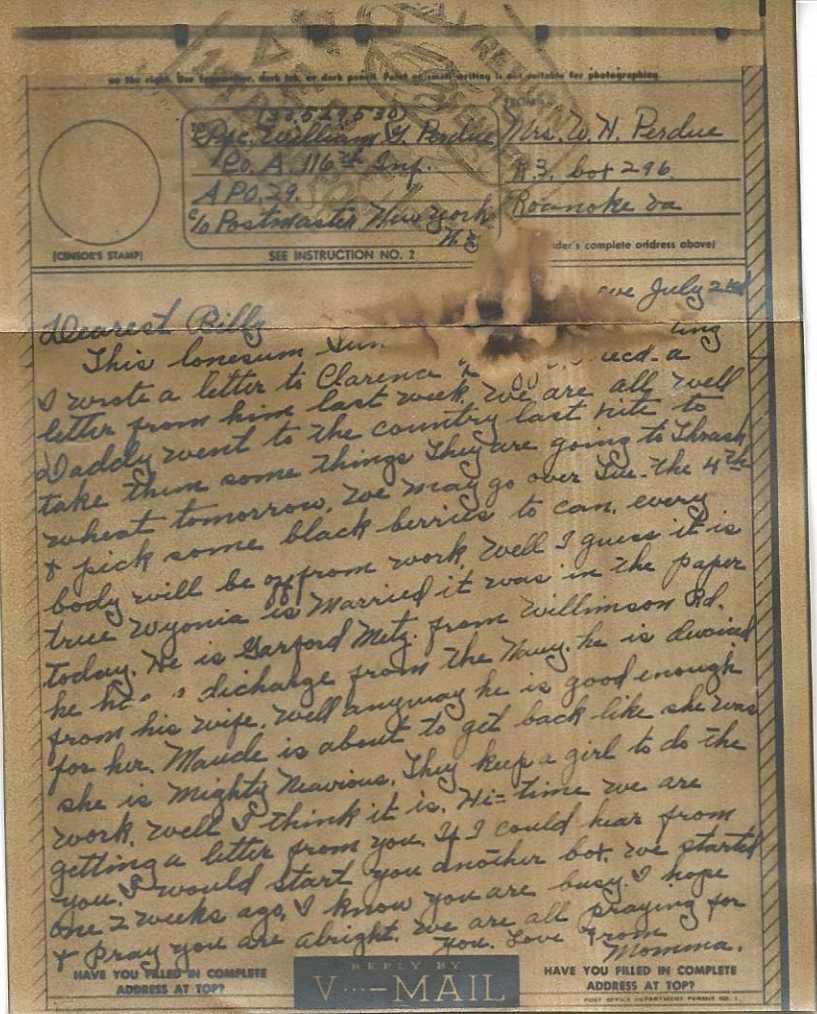 on the right. Use typewriter, dark ink, or dark pencil. Paint or small writing is not suitable for photographing.
RETURN
TO
SENDER
(33,529,530)
TO
Pfc. William G. Perdue
Co. A. 116th Inf.
A P.O. 29.
c/o Postmaster New York
N.Y.
FROM
Mrs. W. H. Perdue
R. 3. box 296.
Roanoke Va
[CENSOR'S STAMP]
SEE INSTRUCTION NO. 2
der's complete address above)
July 2nd
Dearest Billy
This lonesum
I wrote a letter to Clarence recd. a
letter from him last week. We are all well
Daddy went to the country last nite to
take them some things They are going to Thrash
wheat tomorrow. We may go over Tue. the 4th
& pick some black berries to can. every
body will be off from work. Well I guess it is
true Wyonia is Married it was in the paper
today. He is Garford Metz. from Willimson Rd.
he discharge from the Navy. he is devoiced
from his wife. Well anyway he is good enough
for her. Maude is about to get back like she was
she is Mighty Neavious. They keep a girl to do the
work. Well I think it is. Hi= time we are
getting a letter from you. If I could hear from
you. I would start you another box. We started
one 2 weeks ago. I know you are busy. I hope
& pray you are alright. We are all praying for
you. Love From
Momma.
HAVE YOU FILLED IN COMPLETE
ADDRESS AT TOP?
REPLY BY
V···—MAIL
HAVE YOU FILLED IN COMPLETE
ADDRESS AT TOP?
POST OFFICE DEPARTMENT PERMIT NO. 1